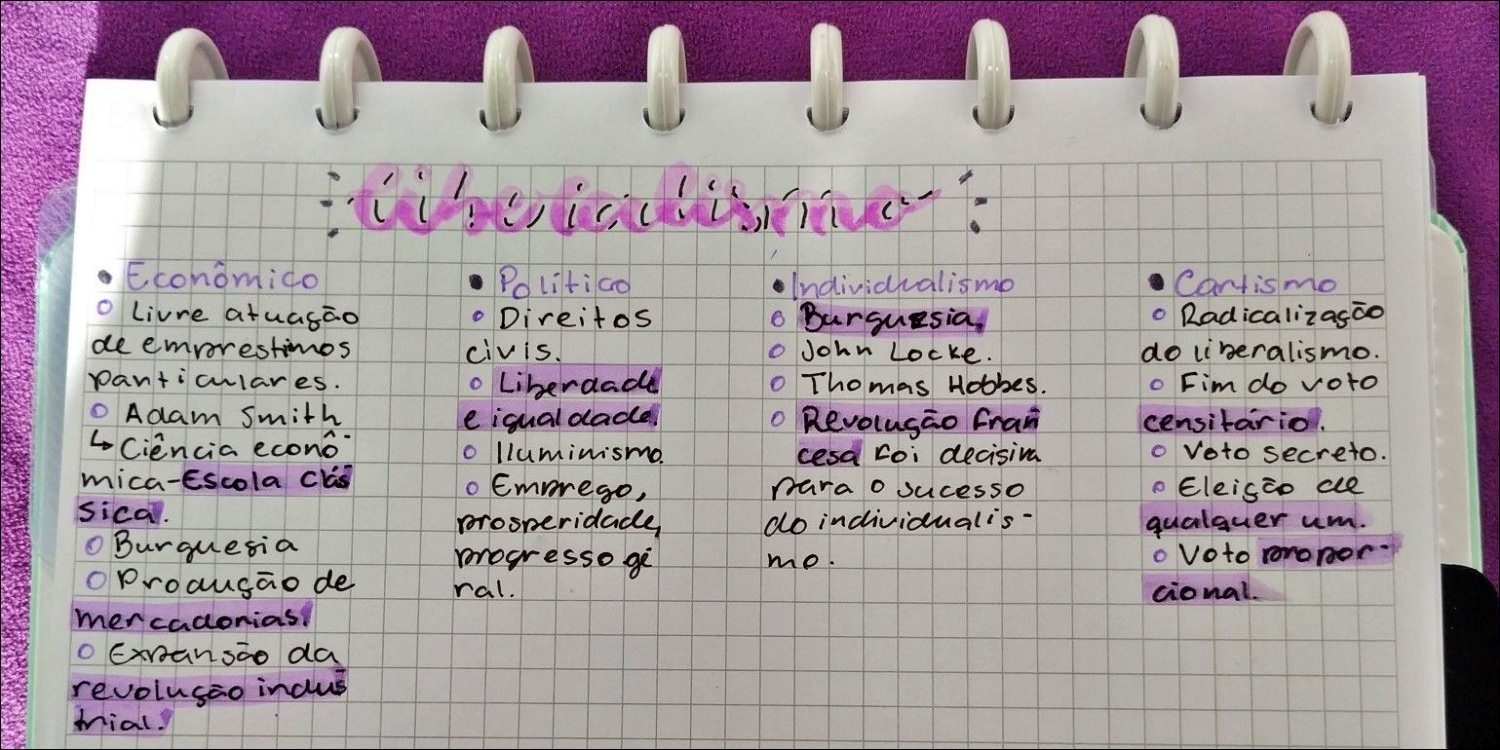 liberalismo
• Econômico
○ Livre atuação
de emprestimos
particulares.
○ Adam Smith
↳ Ciência econô-
mica-Escola Clás
sica.
○ Burguesia
○ Produção de
mercadorias.
○ Expansão da
revolução indus
trial.
• Político
○ Direitos
civis.
○ Liberdade
e igualdade.
○ Iluminismo.
○ Emprego,
prosperidade,
progresso ge
ral.
• Individualismo
○ Burguesia,
○ John Locke.
○ Thomas Hobbes.
○ Revolução Fran
cesa foi decisiva
para o sucesso
do individualis-
mo.
• Cartismo
○ Radicalização
do liberalismo.
○ Fim do voto
censitário.
○ Voto secreto.
○ Eleição de
qualquer um.
○ Voto propor-
cional.